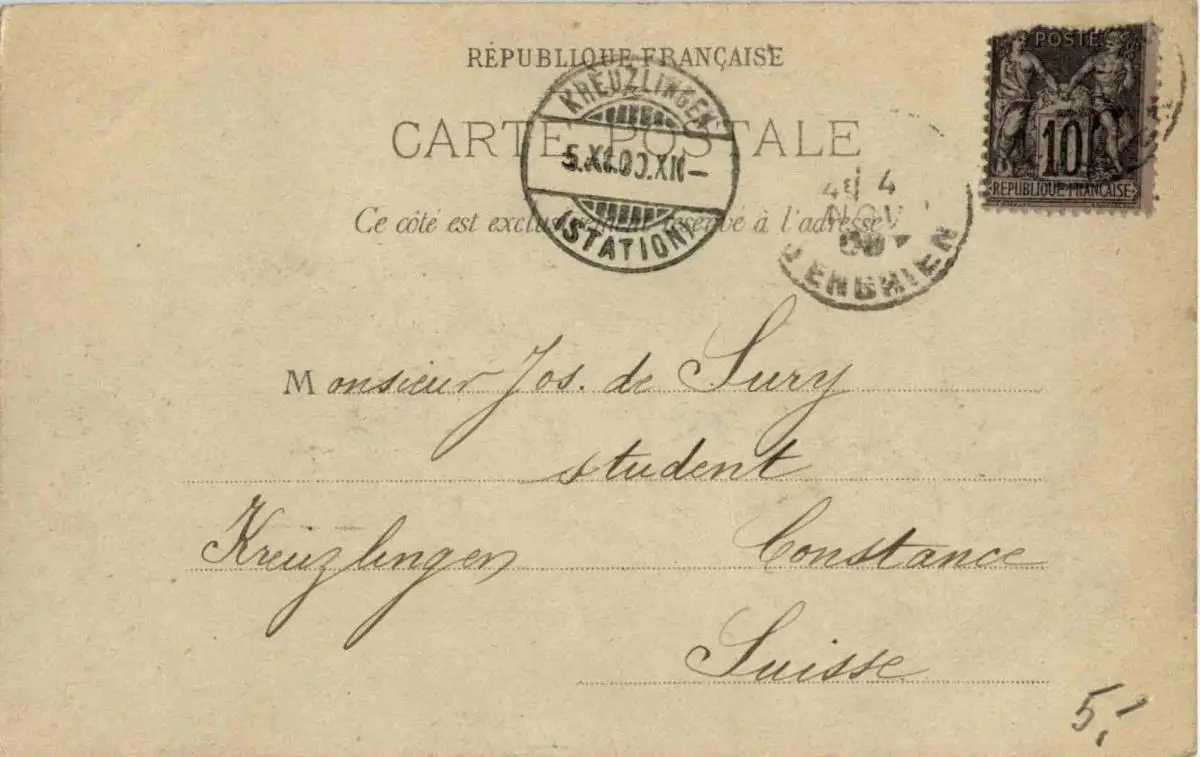 RÉPUBLIQUE FRANÇAISE
CARTE POSTALE
Ce côté est exclusivement réservé à l'adresse
KREUZLINGEN
5.XI.00.XII–
(STATION)
4
NOV
00
D'ENGHIEN
POSTES
10
RÉPUBLIQUE FRANÇAISE
Monsieur Jos. de Sury
student
Kreuzlingen Constance
Suisse
5,-